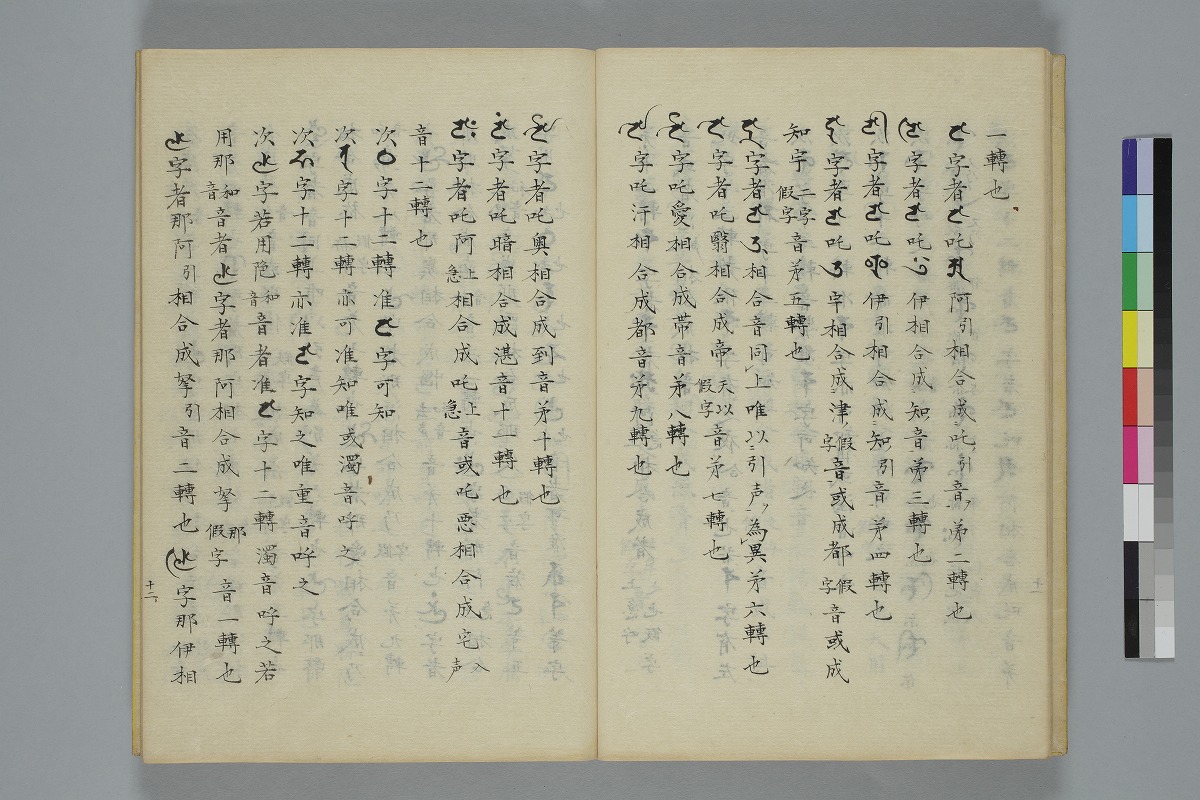 一轉也
𑖘字者𑖘吒𑖁阿引相合成吒引音第二轉也
字者𑖘吒𑖂伊相合成知音第三轉也
字者𑖘吒𑖃伊引相合成知引音第四轉也
字者𑖘吒𑖄宇相合成津假字音或成都假字音或成
知宇二字假字音第五轉也
字者𑖘𑖅相合音同上唯以引声為異第六轉也
字者吒翳相合成帝天以假字音第七轉也
字吒愛相合成帯音第八轉也
字吒汙相合成都音第九轉也
字者吒奧相合成到音第十轉也
字者吒暗相合成湛音十一轉也
字者吒阿上急相合成吒上急音或吒悪相合成宅入声
音十二轉也
次𑖙字十二轉准𑖘字可知
次𑖚字十二轉亦可准知唯或濁音呼之
次𑖛字十二轉亦准𑖘字知之唯重音呼之
次𑖜字若用陁和音音者准𑖘字十二轉濁音呼之若
用那和音音者𑖜字者那阿相合成拏那假字音一轉也
字者那阿引相合成拏引音二轉也字那伊相
十二